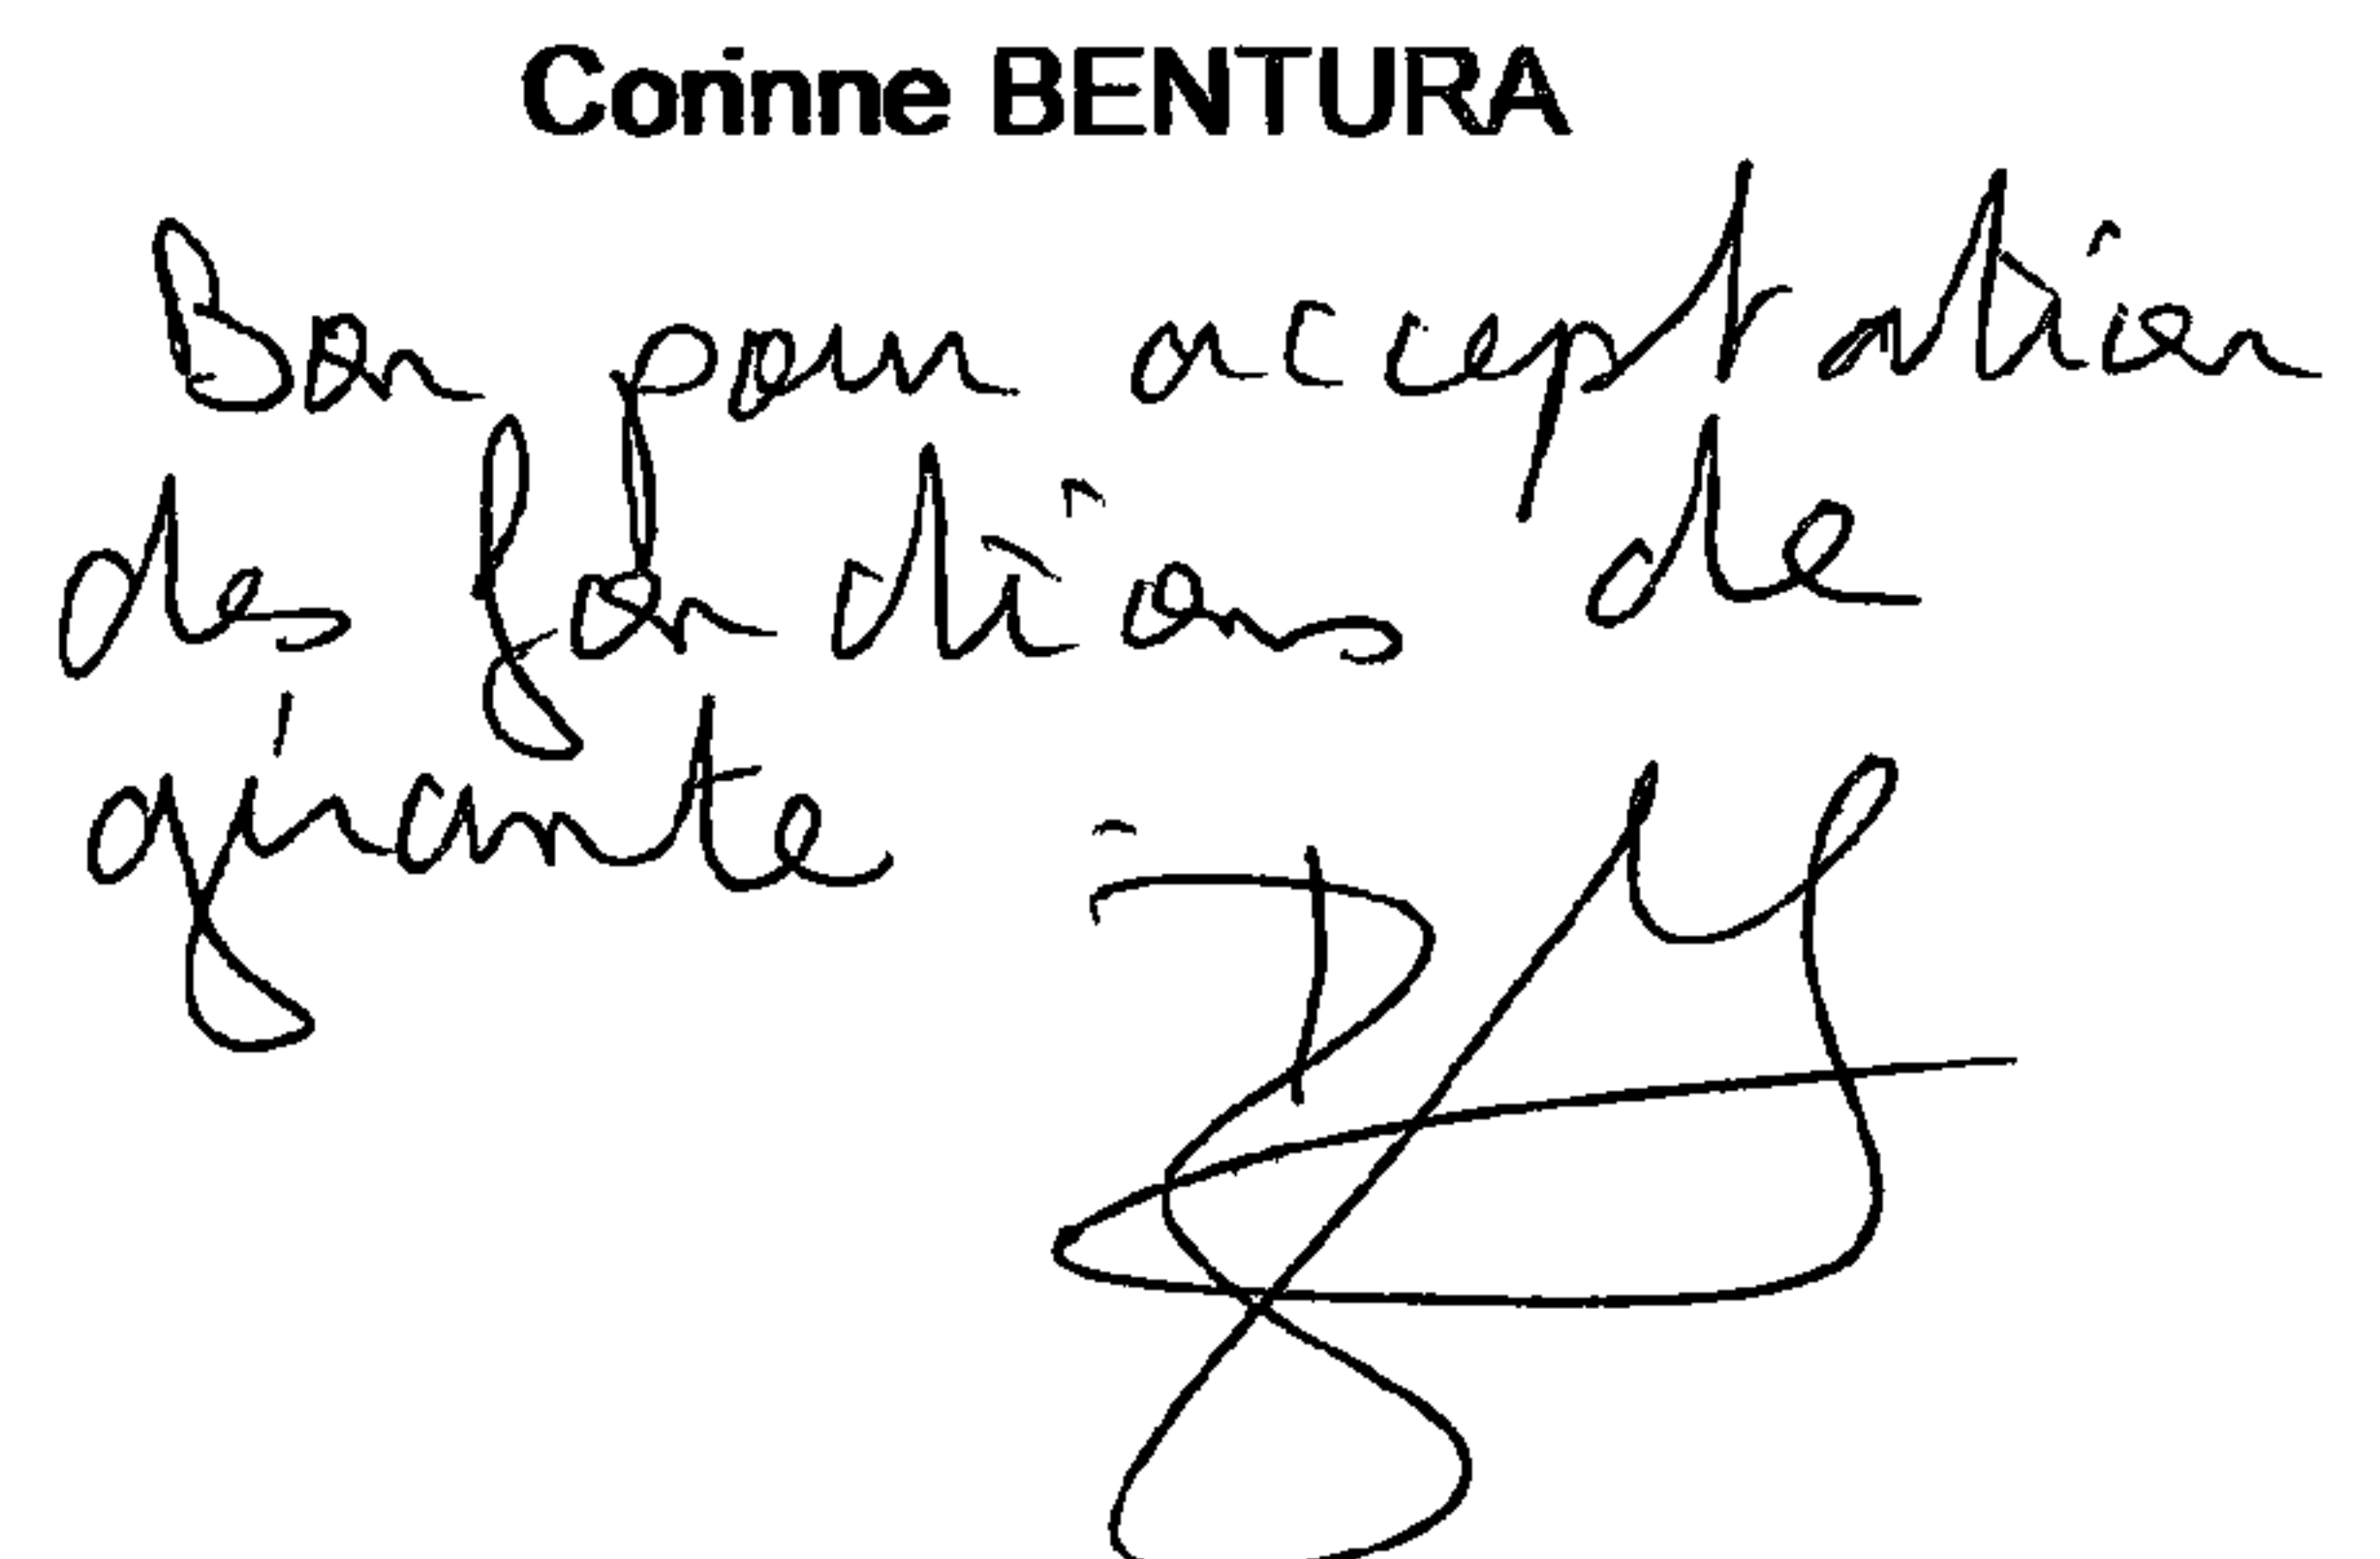 Corinne BENTURA
Bon pour acceptation
des fonctions de
gérante